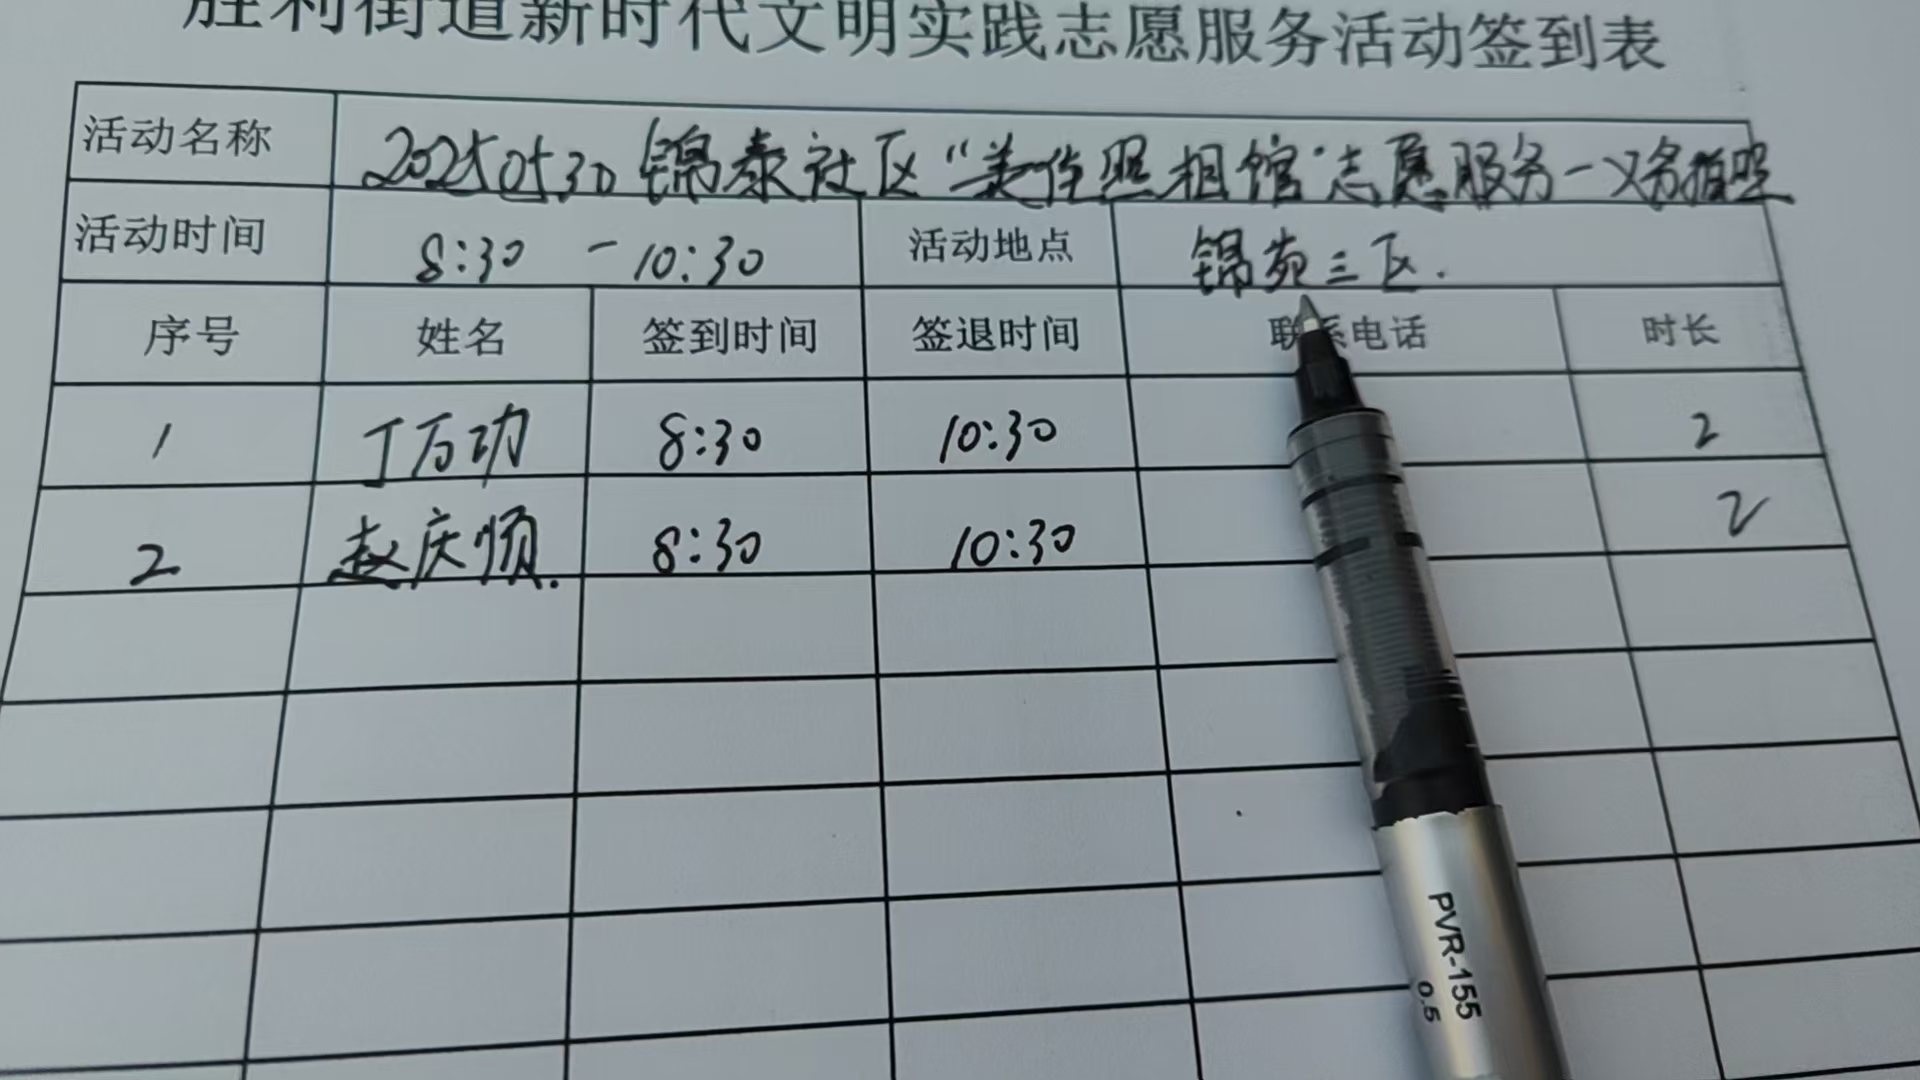 胜利街道新时代文明实践志愿服务活动签到表
活动名称 20250530锦泰社区“美佳照相馆”志愿服务一义务拍照
活动时间 8:30 - 10:30 活动地点 锦苑三区.
序号 姓名 签到时间 签退时间 联系电话 时长
1 丁万功 8:30 10:30 2
2 赵庆顺. 8:30 10:30 2
PVR-155
0.5